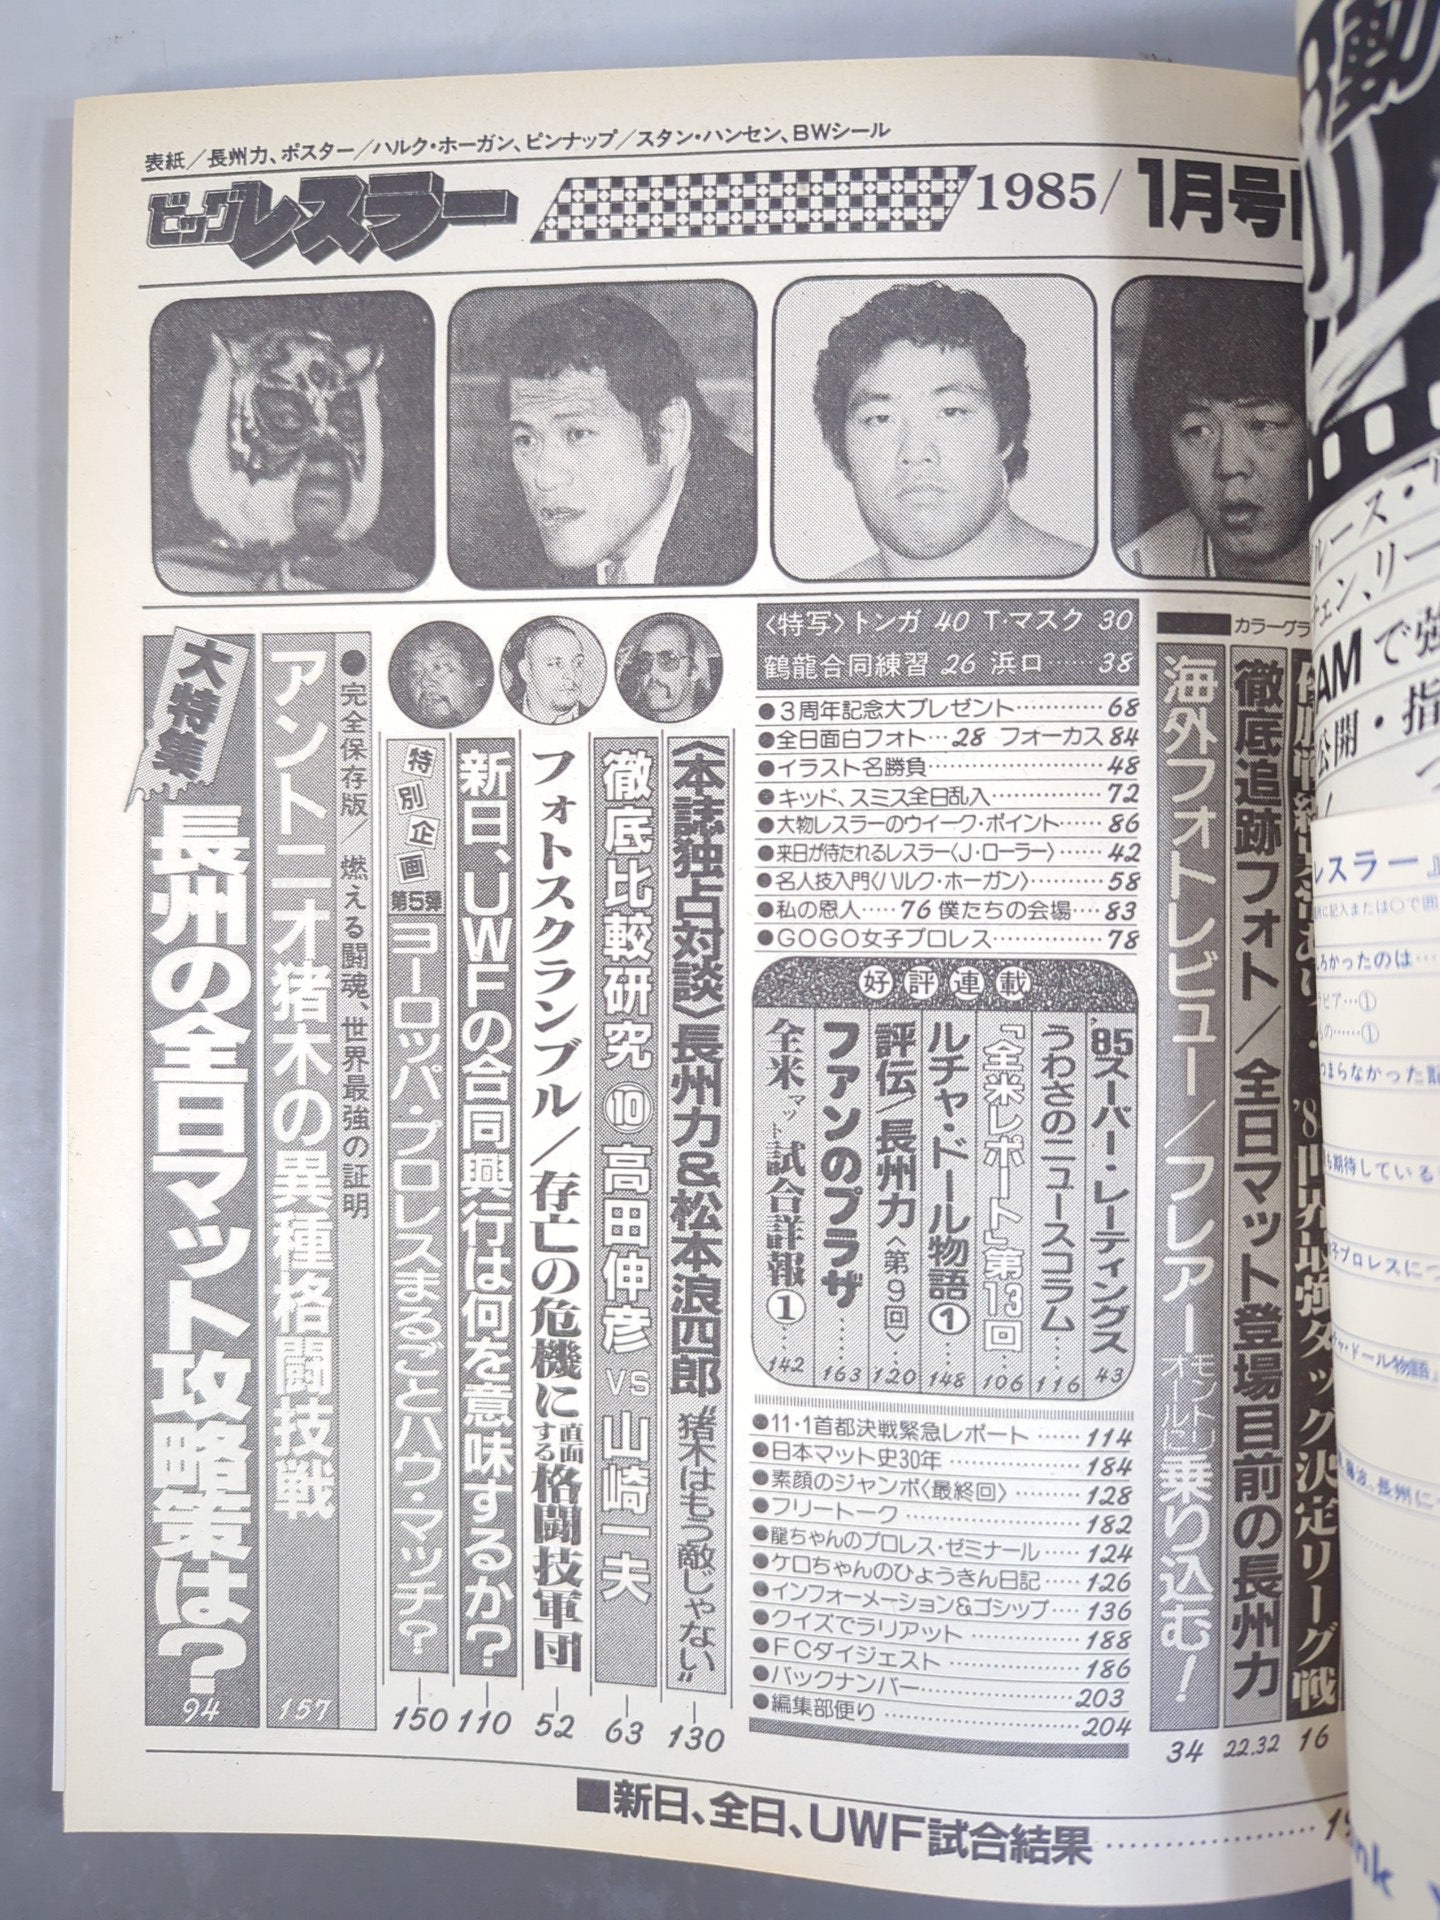 表紙／長州力、ポスター／ハルク・ホーガン、ピンナップ／スタン・ハンセン、BWシール
ビッグレスラー
1985/1月号
カラーグラ
'84世界最強タッグ決定リーグ戦
16
徹底追跡フォト／全日マット登場目前の長州力
22.32
海外フォトレビュー／フレア モントリオール 乗り込む!
34
〈特写〉トンガ 40 T・マスク 30
鶴龍合同練習 26 浜口……38
●3周年記念大プレゼント…………68
●全日面白フォト…28 フォーカス 84
●イラスト名勝負………………48
●キッド、スミス全日乱入……………72
●大物レスラーのウイーク・ポイント……86
●来日が待たれるレスラー〈J・ローラー〉……42
●名人技入門〈ハルク・ホーガン〉………58
●私の恩人……76 僕たちの会場……83
●GOGO女子プロレス……………78
好評連載
'85スーパー・レーティングス 43
うわさのニュースコラム……116
『全米レポート』第13回…106
ルチャ・ドール物語①……148
評伝／長州力〈第9回〉……120
ファンのプラザ……163
全米マット試合詳報①……142
●11・1首都決戦緊急レポート……114
●日本マット史30年………………184
●素顔のジャンボ〈最終回〉………128
●フリートーク………………182
●龍ちゃんのプロレス・ゼミナール……124
●ケロちゃんのひょうきん日記……126
●インフォーメーション&ゴシップ……136
●クイズでラリアット………………188
●FCダイジェスト………………186
●バックナンバー………………203
●編集部便り………………204
〈本誌独占対談〉長州力&松本浪四郎 “猪木はもう敵じゃない”
130
徹底比較研究⑩高田伸彦VS山崎一夫
63
フォトスクランブル／存亡の危機に直面する格闘技軍団
52
新日、UWFの合同興行は何を意味するか?
110
特別企画 第5弾 ヨーロッパ・プロレスまるごとハウ・マッチ?
150
●完全保存版／燃える闘魂、世界最強の証明
アントニオ猪木の異種格闘技戦
157
大特集
長州の全日マット攻略策は?
94
■新日、全日、UWF試合結果
レスラー』